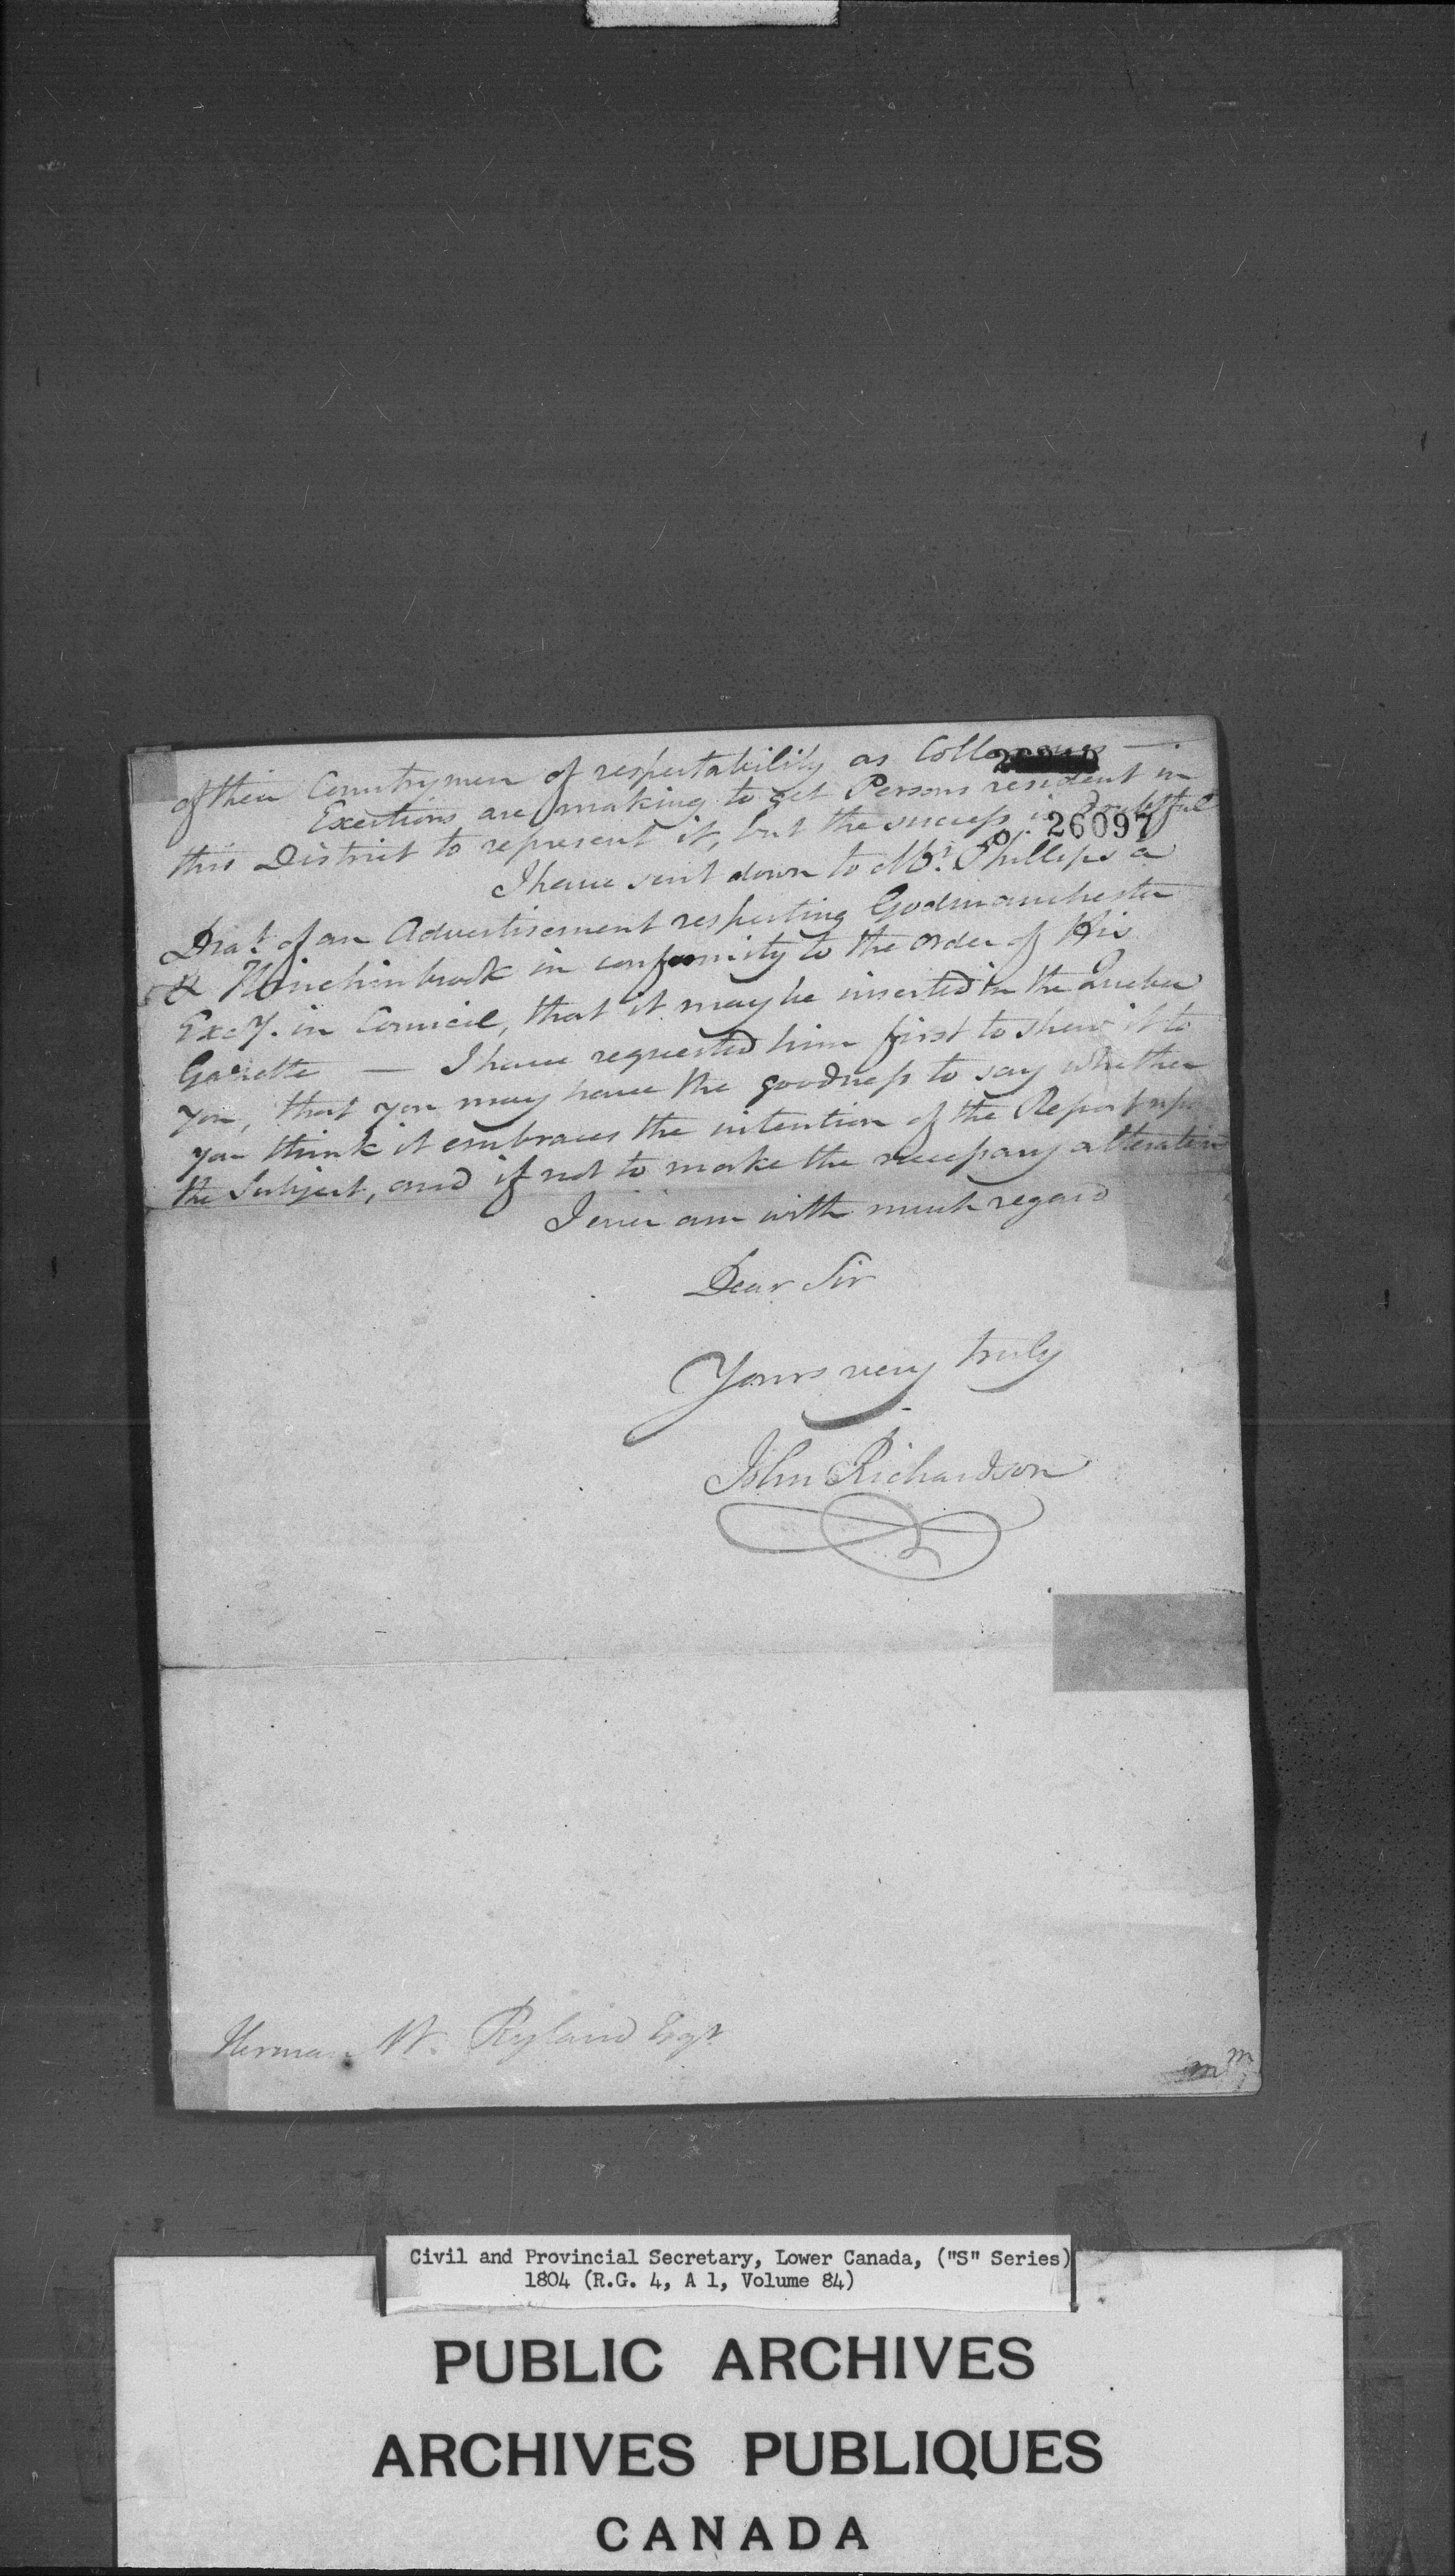 of their Countrymen of respectability as Colleagues —
Exertions are making to get Persons resident in
this District to represent it, but the success is doubtful
26097
I have sent down to Mr. Phillips a
Drat. of an Advertisement respecting Godmanchester
& Hinchinbrook in conformity to the order of His
Excy. in Council, that it may be inserted in the Quebec
Gazette — I have requested him first to shew it to
you, that you may have the goodness to say whether
you think it embraces the intention of the Report upon
the Subject, and if not to make the necessary alteration
I ever am with much regard
Dear Sir
Yours very truly
John Richardson
Herman W. Ryland Esqr.
Civil and Provincial Secretary, Lower Canada, ("S" Series)
1804 (R.G. 4, A 1, Volume 84)
PUBLIC ARCHIVES
ARCHIVES PUBLIQUES
CANADA